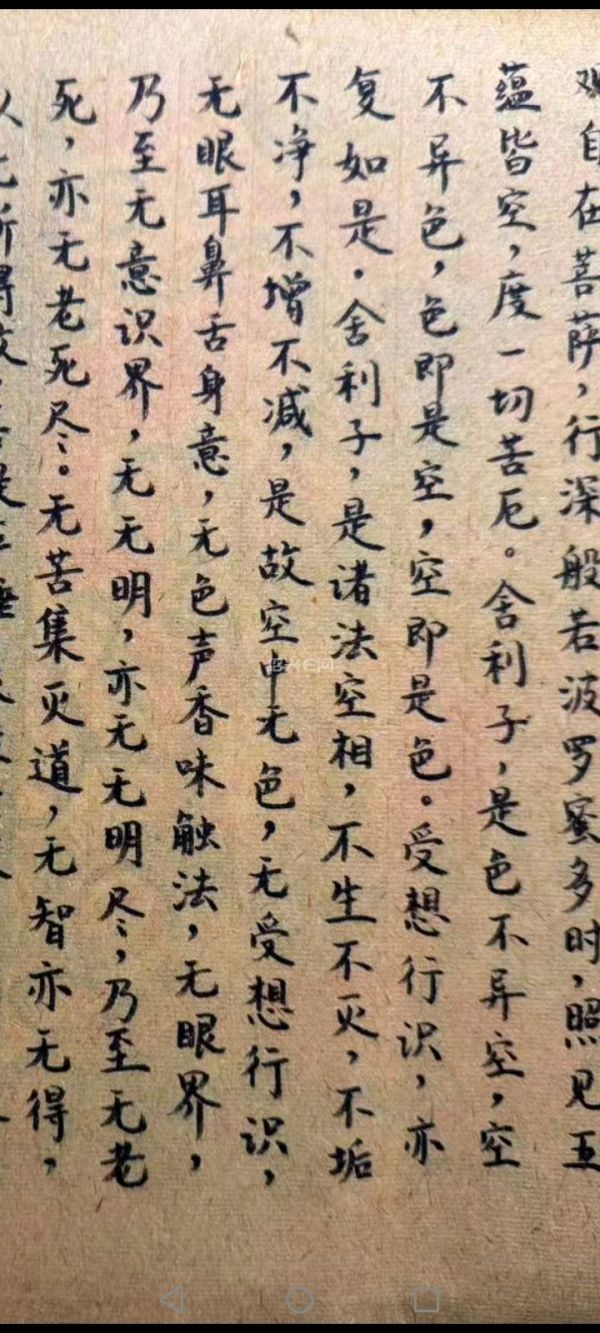 观自在菩萨，行深般若波罗蜜多时，照见五
蕴皆空，度一切苦厄。舍利子，是色不异空，空
不异色，色即是空，空即是色。受想行识，亦
复如是。舍利子，是诸法空相，不生不灭，不垢
不净，不增不减，是故空中无色，无受想行识，
无眼耳鼻舌身意，无色声香味触法，无眼界，
乃至无意识界，无无明，亦无无明尽，乃至无老
死，亦无老死尽。无苦集灭道，无智亦无得，
以无所得故